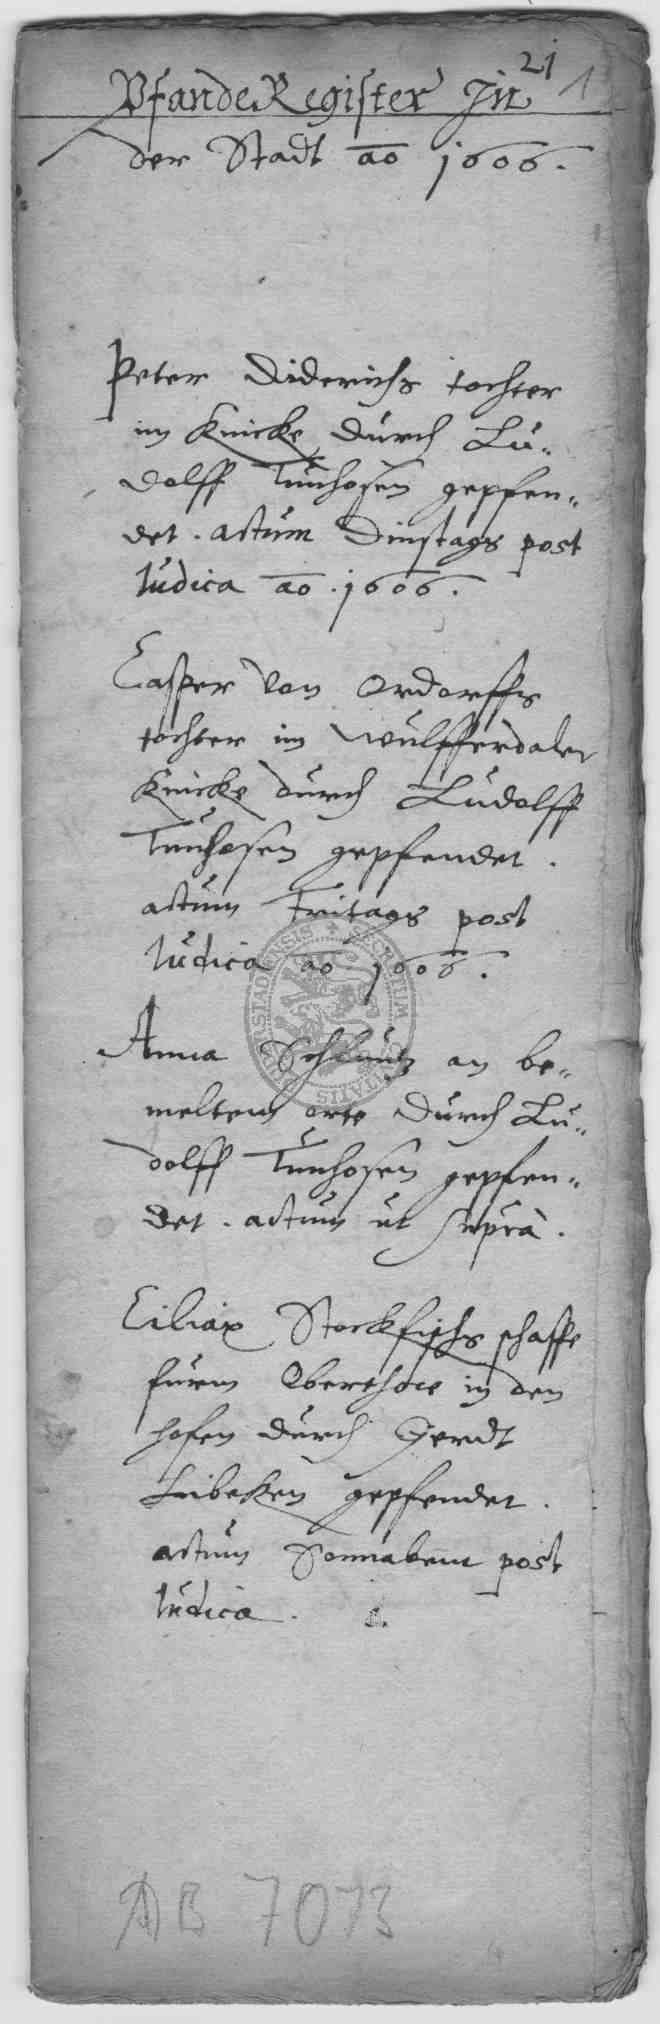 21 1
PfandeRegister In
der Stadt ao 1606.
Peter Diderichs tochter
im Knicke durch Lu-
dolff Tunhosen gepfen-
det. actum Dinstags post
Iudica ao. 1606.
Casper von Ordorffs
tochter im Wulfferdaler
Knicke durch Ludolff
Tunhosen gepfendet.
actum Fritags post
Iudica ao 1606.
Anna an be-
meltem orte durch Lu-
dolff Tunhosen gepfen-
det. actum ut supra.
Ciliax Stockfischs schaffe
furm in den
hofen durch Gerdt
Lubeken gepfendet.
actum Sonnabent post
Iudica.
SECRETUM CIVITATIS
AB 7073